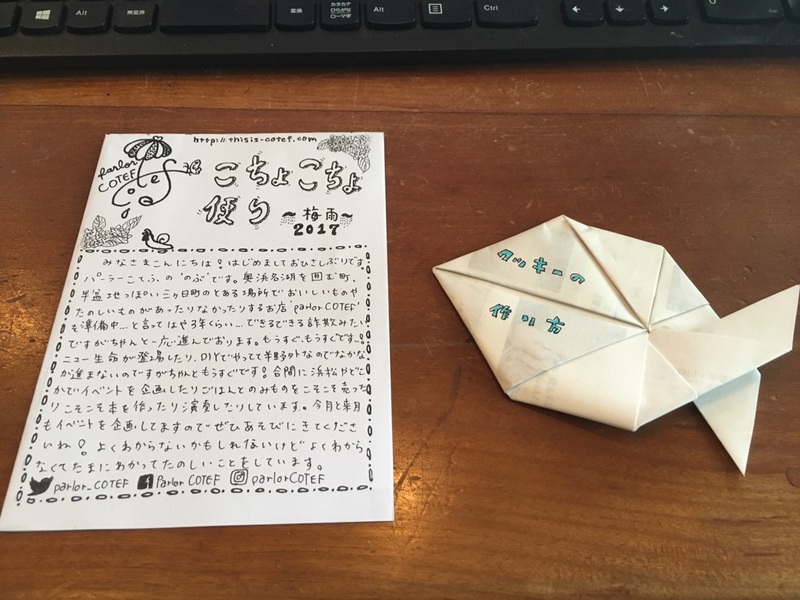 Alt
無変換
変換
カタカナ
ひらがな
ローマ字
Alt
Ctrl
http://thisis-cotef.com
parlor
COTEF
cotef
こちょこちょ
便り
〜梅雨〜
2017
みなさまこんにちは！はじめましておひさしぶりです。
パーラーこてふの"のぶ"です。奥浜名湖を囲む町、
半盆地っぽい三ヶ日町のとある場所でおいしいものや
たのしいものがあったりなかったりするお店"parlor COTEF"
を準備中…と言ってはや3年くらい…できるできる詐欺みたい
ですがちゃんと一応進んでおります。もうすぐもうすぐです！
ニュー生命が登場したり、DIYでやってて半野外なのでなかなか
が進まないのですがちゃんともうすぐです！合間に浜松やどこ
かでイベントを企画したりごはんとのみものをこそこそ売った
りこそこそ本を作ったり演奏したりしています。今月と来月
もイベントを企画してますのでぜひあそびにきてくださ
いね！よくわからないかもしれないけどよくわから
なくてたまにわかってたのしいことをしています。
parlor_COTEF
Parlor COTEF
parlorCOTEF
クッキーの
作り方